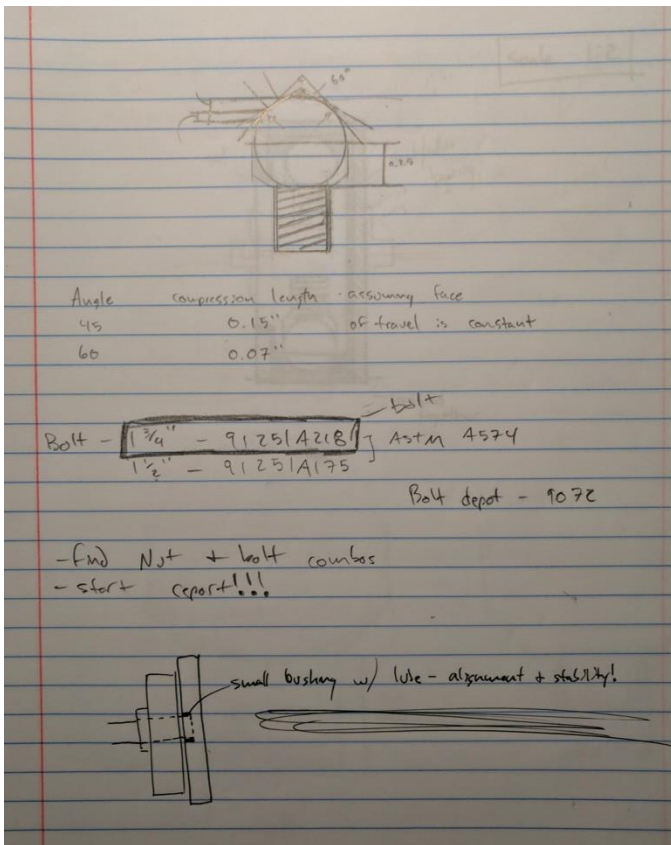 60°
0.25
Angle compression length - assuming face
45 0.15" of travel is constant
60 0.07"
bolt
Bolt - 1 3/4" - 91251A218 ] ASTM A574
1 1/2" - 91251A175
Bolt depot - 9072
- find Nut + bolt combos
- start report!!!
small bushing w/ lube - alignment & stability!